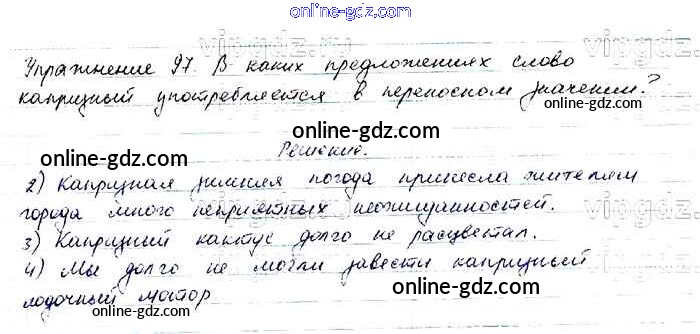 online-gdz.com
vingdz.ru
Упражнение 97. В каких предложениях слово
капризный употребляется в переносном значении?
online-gdz.com
online-gdz.com
online-gdz.com
Решение.
online-gdz.com
2) Капризная зимняя погода принесла жителям
города много неприятных неожиданностей.
vingdz
online-gdz.com
3) Капризный кактус долго не расцветал.
4) Мы долго не могли завести капризный
online-gdz.com
лодочный мотор
online-gdz.com
online-gdz.com